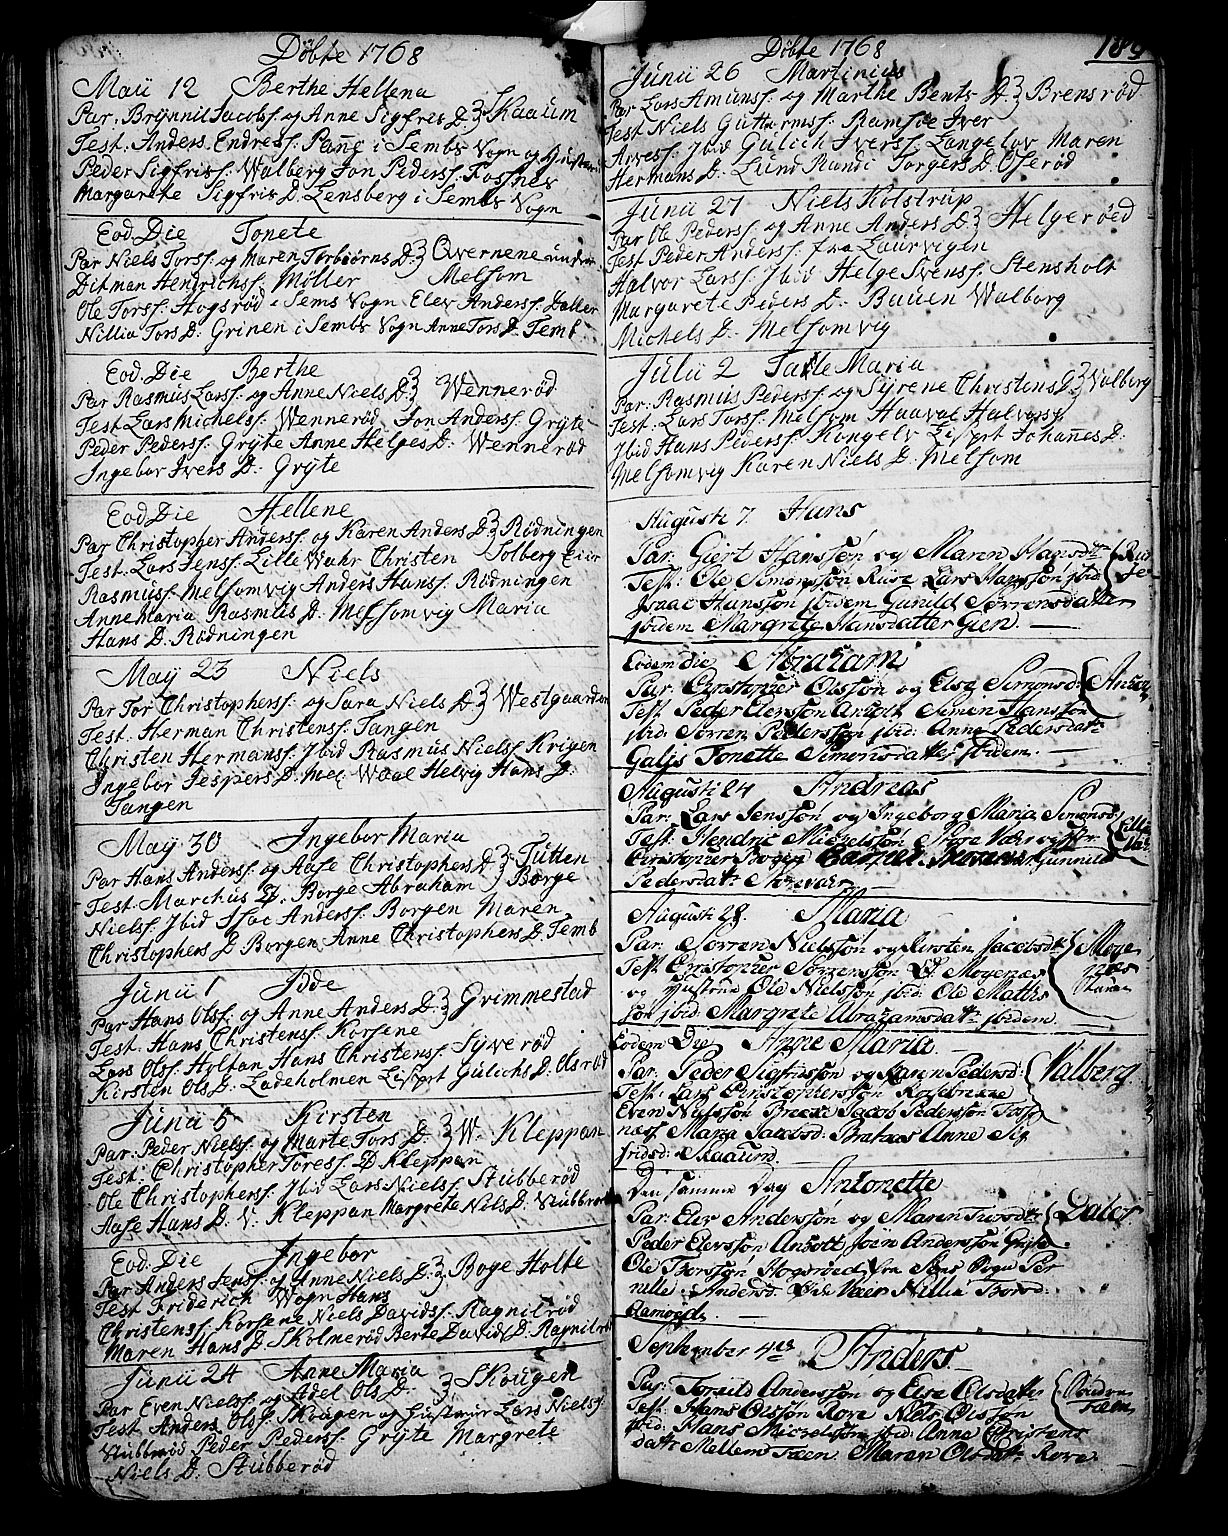 Döbte 1768
Maii 12 Berthe Hellena
Par. Brynnil Jacobs. og Anne Sigfris D. Skaaum
Test. Anders Endress. Pange i Sembs Sogn og Hustrue
Peder Sigfriss. Walberg Jon Pederss. Fossnes
Margarete Sigfris D. Lensberg i Sembs Sogn
Eod. Die Tonete
Par Niels Torss. og Maren Torbiörns D. Qvernene under
Ditman Hendrichs Möller Melsom
Ole Torss. Hogsröd i Sems Sogn Elev Anderss. Daller
Nillia Tors D. Grinen i Sembs Sogn Anne Tors D. Temb
Eod. Die Berthe
Par Rasmus Larss. og Anne Niels D. Wenneröd
Test Lars Michelss. Wenneröd Jon Anderss. Gryte
Peder Pederss. Gryte Anne Helges D. Wenneröd
Ingebor Ivers D. Gryte
Eod Die Hellene
Par Christopher Anderss. og Karen Anders D. Rödningen
Test. Lars Jenss. Lille Wahr Christen Solberg Eier
Rasmuss. Melsomvig Anders Hanss. Rödningen
Anne Maria Rasmus D. Melsomvig Maria
Hans D. Rödningen
May 23 Niels
Par Tor Christopherss. og Sara Niels D. Westgaarden
Test. Herman Christenss. Tangen
Christen Hermanss. Ibid Rasmus Nielss. Krigen
Ingebor Jespers D. Mel. Waae Helvig Hans D.
Tangen
May 30 Ingebor Maria
Par Hans Anderss. og Aase Christophers D. Tutten
Test. Marchus D. Borge Abraham Borge
Nielss. Ibid Isac Anderss. Borgen Maren
Christophers D. Borgen Anne Christophers D. Temb
Junii 1 Idde
Par Hans Olss. og Anne Anders D. Grimmestad
Test. Hans Christenss. Korsene
Lars Olss. Holtan Hans Christenss. Syveröd
Kirsten Ols D. Ladeholmen Lisprt Gulichs D. Olsröd
Junii 5 Kirsten
Par. Peder Nielss. og Marte Tors D. W. Kleppan
Test. Christopher Toress. D Kleppan
Ole Christopherss. Ibid Lars Nielss. Stubberöd
Aase Hans D. V. Kleppan Margrete Niels D. Stubberöd
Eod. Die Ingebor
Par Anders Jenss. og Anne Niels D. Boge Holte
Test Friderich Wogn Hans
Christenss. Korsene Niels Davidss. Ragnilröd
Maren Hans D. Skolmeröd Berte Davids D. Ragnilröd
Junii 24 Anne Maria
Par Even Nielss. og Adel Ols D. Skougen
Test Anders Olss. Skougen og Hustrue Lars Nielss.
Stubberöd Peder Pederss. Gryte Margrete
Niels D. Stubberöd
Döbte 1768 189
Junii 26 Martinius
Par Lars Amunss. og Marthe Bents D. Brensröd
Test Niels Guttormss. Ramsöe Iver
Arvess. Ibid Gulich Iverss. Langelöv Maren
Hermans D. Lund Randi Torgers D. Oseröd
Junii 27 Niels Kolstrup
Par Ole Pederss. og Anne Anders D. Helgeröed
Test Peder Anderss. fra Laurvigen
Halvor Larss. Ibid Helge Svenss. Stensholt
Margarete Peders D. Bauen Walborg
Michels D. Melsomvig
Julii 2 Tarle Maria
Par. Rasmus Pederss. og Syrene Christens D. Valberg
Test. Lars Torss. Melsom Haaval Halvorss
Ibid Hans Pederss. Kongelv Lisprt Johannes D.
Melsomvig Karen Niels D. Melsom
Augusti 7. Hans
Par: Giert Hanssön og Maren Hansdtr
Test: Ole Simonsön Ruse Lars Hanssön ibid
Isaac Hanssön ibidem Gunild Sörrensdatter
ibidem Margrete Hansdatter Gien.
Eodem die Abraham
Par. Christopher Olssön og Else Simonsd: Anholt
Test. Peder Elerssön Anholt Simen Hanssön
ibid: Sörren Pederssön ibid: Anne Pedersdatr
Galis Tonette Simonsdatter ibidem.
Augusti 24 Andreas
Par: Lars Jenssön og Ingeborg Maria Simonsd:
Test: Hendric Michelssön
Christopher Gunnild
Pedersdatr
Augusti 28. Maria
Par. Sörren Nielssön og Kirsten Jacobsdr Moge
Test. Christopher Sörrenssön D. Mogenæs næs
og Hustrue Ole Nielssön ibid. Ole Mathis
sön ibid. Margrete Abrahamsdatr ibidem.
Eodem Die Anne Maria
Par. Peder Sigfrissön og Karen Pedersd: Valberg
Test. Lars Christopherssön
Even Nielssön Jacob Pederssön Foss
næss Maria Jacobsd: Anne Sig
fridsd: Skaaum
Den samme Dag Antonette
Par. Elev Anderssön og Maren Thorsdtr Daler
Peder Elevssön Anholt Joen Anderssön Gryte
Ole Thorssön Hogsröed fra Sems Sogn Per
nille Andersd: Nillia Thorsd:
Ramöed.
September 4de Anders
Par: Torkild Anderssön og Else Olsdatter Søndre
Test. Hans Olssön Rore Niels Olssön Fæen
ibid: Hans Michelssön ibid: Anne Christens
datr Mellem Fæen Maren Olsdatr Rore.